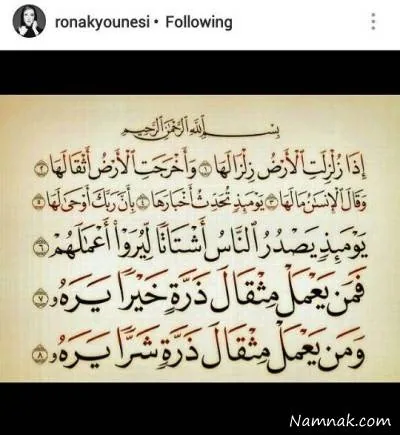 ronakyounesi • Following
بِسْمِ ٱللَّهِ ٱلرَّحْمَٰنِ ٱلرَّحِيمِ
إِذَا زُلْزِلَتِ ٱلْأَرْضُ زِلْزَالَهَا ١ وَأَخْرَجَتِ ٱلْأَرْضُ أَثْقَالَهَا ٢
وَقَالَ ٱلْإِنسَٰنُ مَالَهَا ٣ يَوْمَئِذٍ تُحَدِّثُ أَخْبَارَهَا ٤ بِأَنَّ رَبَّكَ أَوْحَىٰ لَهَا ٥
يَوْمَئِذٍ يَصْدُرُ ٱلنَّاسُ أَشْتَاتًا لِّيُرَوْا۟ أَعْمَٰلَهُمْ ٦
فَمَن يَعْمَلْ مِثْقَالَ ذَرَّةٍ خَيْرًا يَرَهُۥ ٧
وَمَن يَعْمَلْ مِثْقَالَ ذَرَّةٍ شَرًّا يَرَهُۥ ٨
Namnak.com